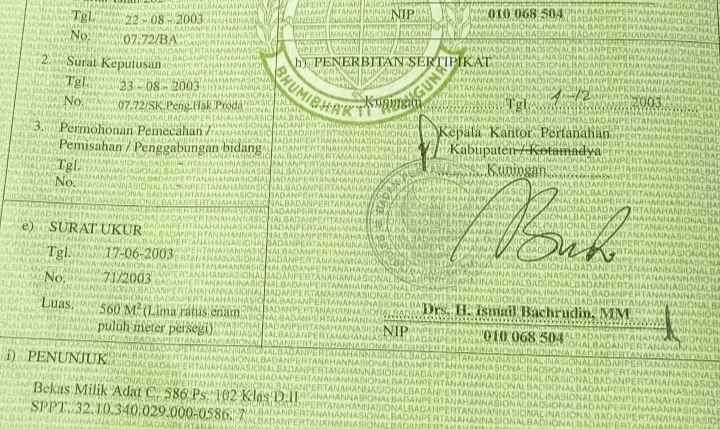 Tgl. 22 - 08 - 2003
No. 07.72/BA
NIP 010 068 504
2. Surat Keputusan
Tgl. 23 - 08 - 2003
No. 07.72/SK.Peng.Hak/Proda
3. Permohonan Pemecahan /
Pemisahan / Penggabungan bidang
Tgl. -
No. -
h) PENERBITAN SERTIPIKAT
BHUMIBHAKTI
Kuningan Tgl. 1-12 2003
Kepala Kantor Pertanahan
Kabupaten / Kotamadya
Kuningan
e) SURAT UKUR
Tgl. 17-06-2003
No. 71/2003
Luas. 560 M² (Lima ratus enam
puluh meter persegi)
Drs. H. Ismail Bachrudin, MM
NIP 010 068 504
i) PENUNJUK
Bekas Milik Adat C. 586 Ps. 102 Klas D.II
SPPT. 32.10.340.029.000-0586. 7